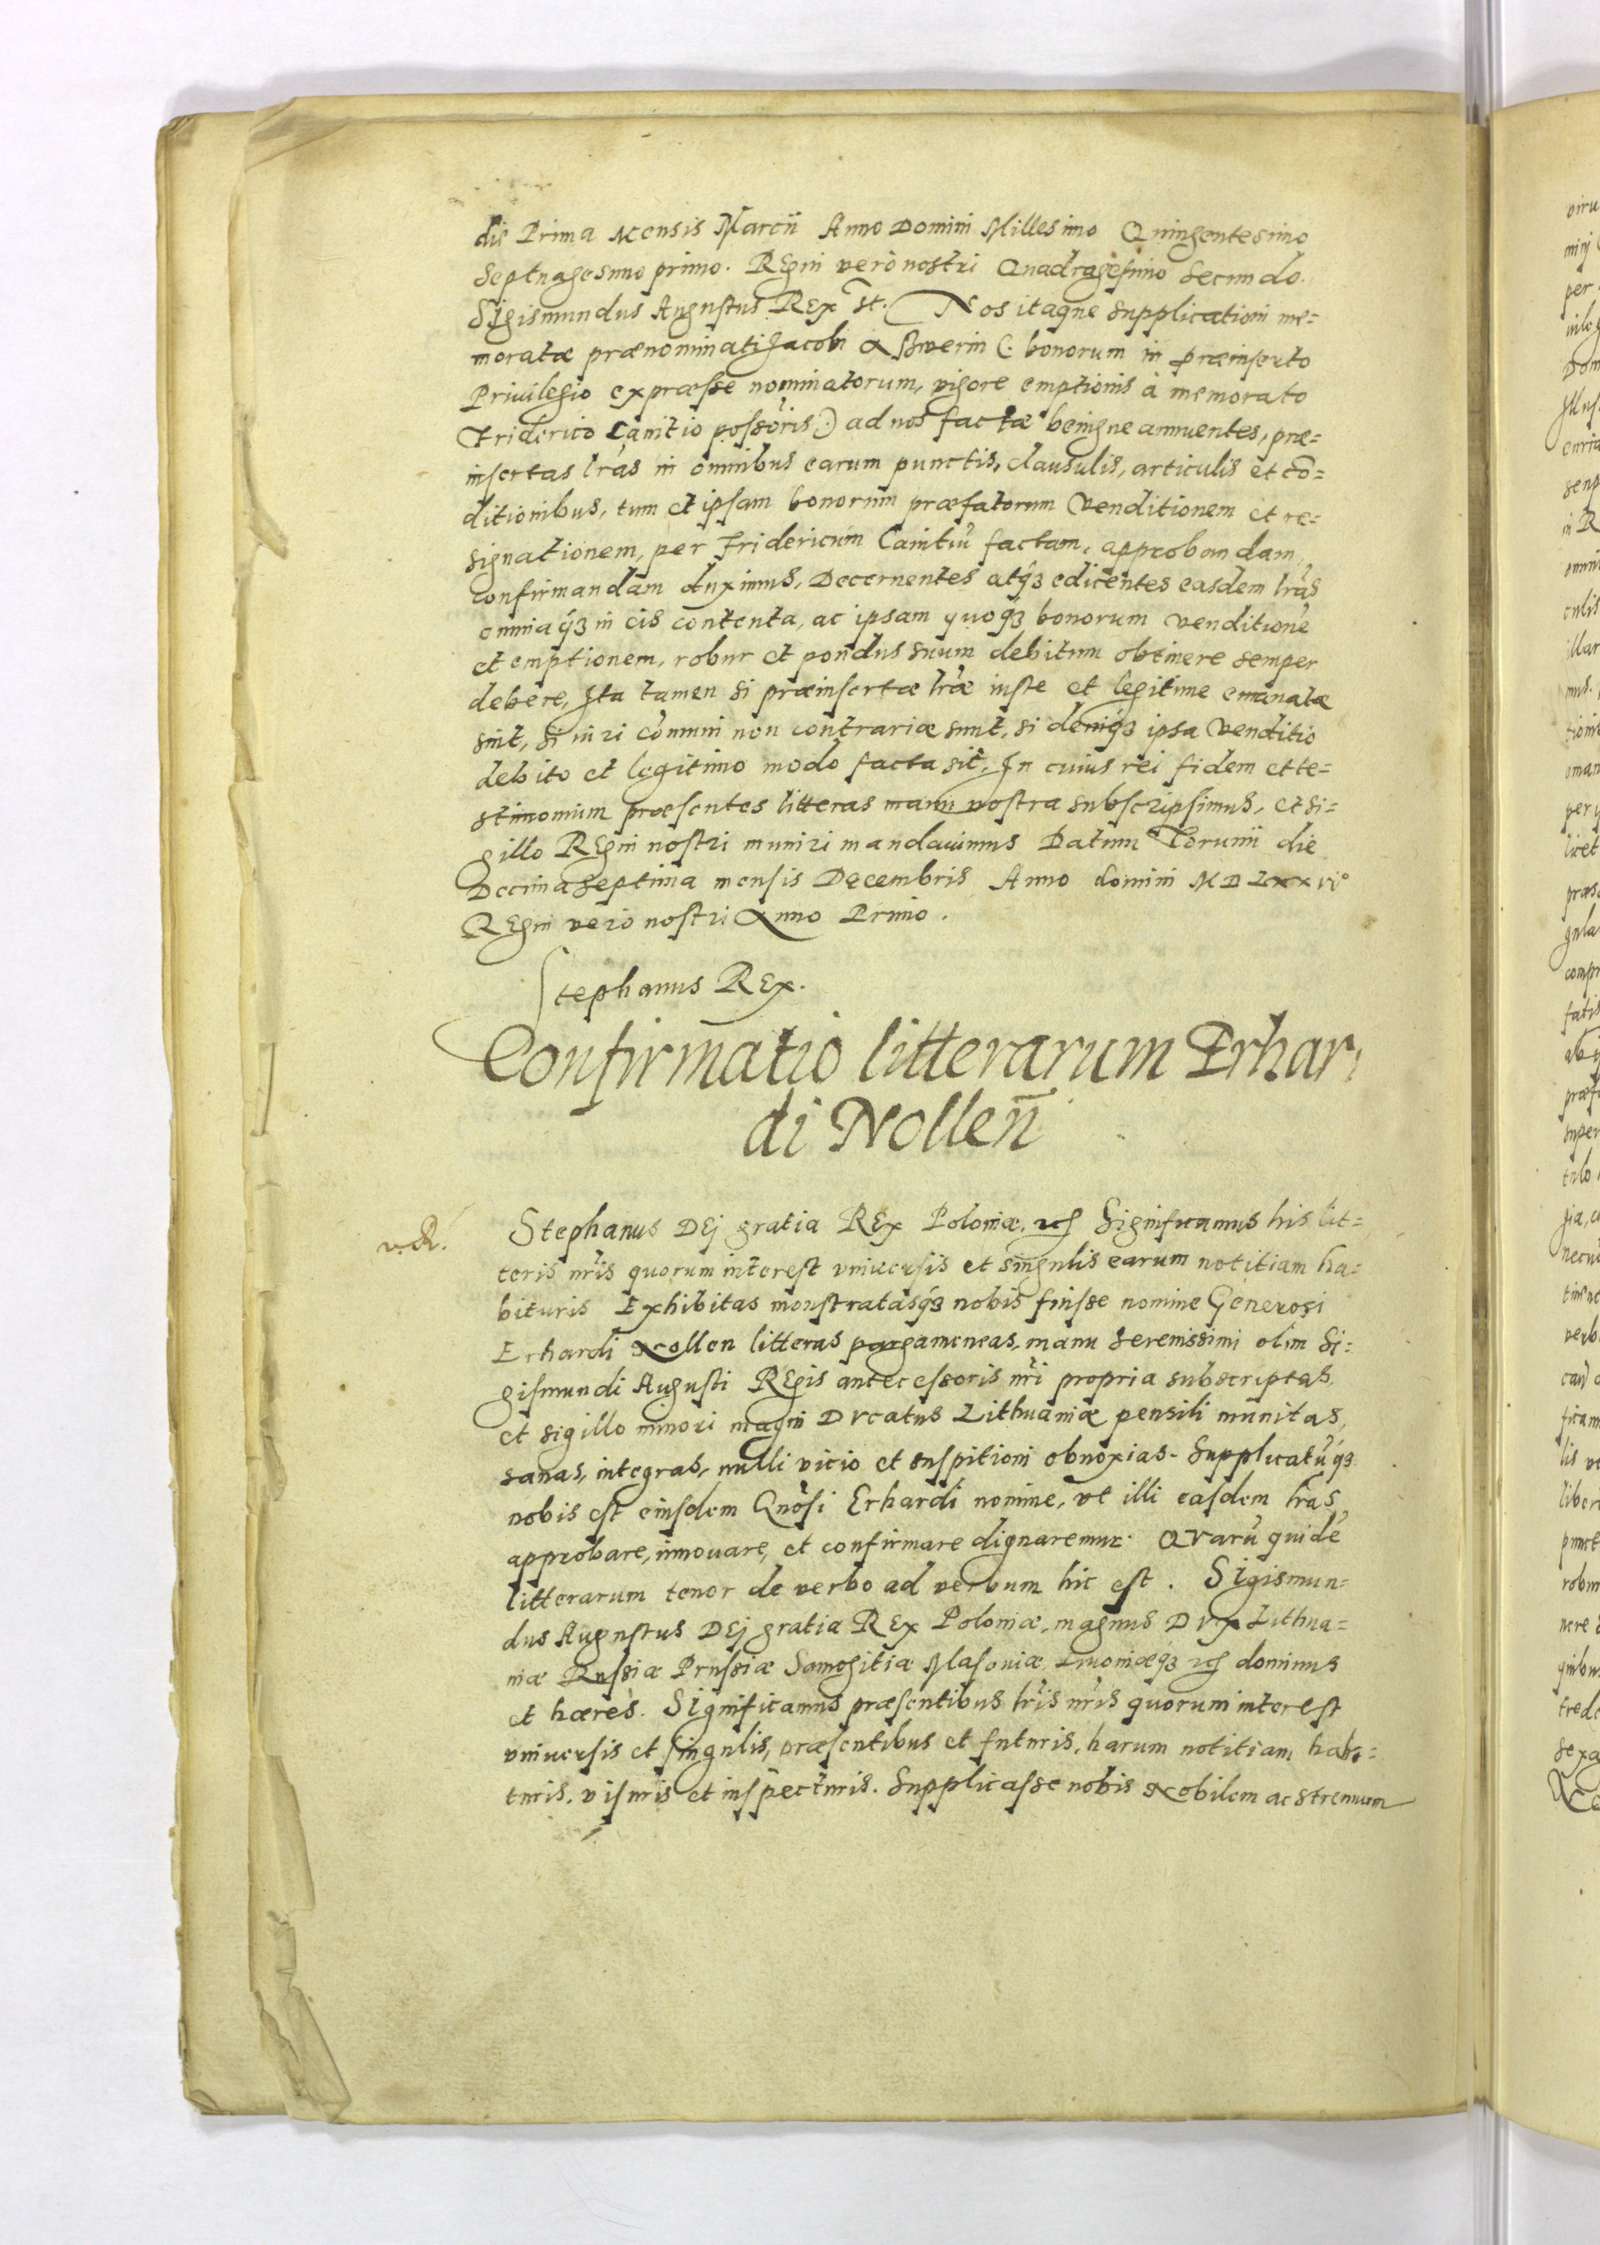 die Prima Mensis Marcii Anno Domini Millesimo Quingentesimo
Septuagesimo primo. Regni vero nostri Quadragesimo Secundo.
Sigismundus Augustus Rex st. Nos itaque supplicationi me=
moratæ prænominati Jacobi a Shwerin (: bonorum in præinserto
Privilegio expræsse nominatorum, vigore emptionis à memorato
Friderico Canitio possoris:) ad nos factæ benigne annuentes, præ=
insertas lras in omnibus earum punctis, clausulis, articulis et co=
ditionibus, tum et ipsam bonorum præfatorum Venditionem et re=
signationem, per Fridericum Canitiu factam, approbandam,
confirmandam duximus, Decernentes atq3 edicentes easdem lras
omniaq3 in eis contenta, ac ipsam quoq3 bonorum venditione
et emptionem, robur et pondus suum debitum obtinere semper
debere, Ita tamen si præinsertæ lræ iuste et legitime emanatæ
sint, si iuri comuni non contrariæ sunt, si deniq3 ipsa Venditio
debito et legitimo modo facta sit, In cuius rei fidem et te=
stimonium præsentes litteras manu nostra subscripsimus, et si=
gillo Regni nostri muniri mandavimus Datum Torunii die
Decima septima mensis Decembris Anno domini MDLxxvi°
Regni vero nostri Anno Primo.
Stephanus Rex.
Confirmatio litterarum Erhar
di Nolleñ
Stephanus Dej gratia Rex Poloniæ, Significamus his lit=
teris nris quorum interest vniuersis et singulis earum notitiam ha=
bituris Exhibitas monstratasq3 nobis fuisse nomine Generosi
Erhardi Nollen litteras pargameneas, manu serenissimi olim Si=
gismundi Augusti Regis antecessoris nri propria subscriptas,
et sigillo minori magni Ducatus Lithuaniæ pensili munitas,
sanas, integras, nulli vicio et suspitioni obnoxias. Supplicatuq3
nobis est eiusdem Gnosi Erhardi nomine, vt illi easdem lras
approbare, innouare, et confirmare dignaremur. Qvaru quide
litterarum tenor de verbo ad verbum hic est. Sigismun=
dus Augustus Dej gratia Rex Poloniæ, magnus Dvx Lithua=
niæ Russiæ Prussiæ Samogitiæ Masoviæ Liuoniæq3 dominus
et hæres. Significamus præsentibus lris nris quorum interest
vniuersis et singulis, præsentibus et futuris, harum notitiam habi=
turis, visuris et inspecturis. Supplicasse nobis Nobilem ac strenuum